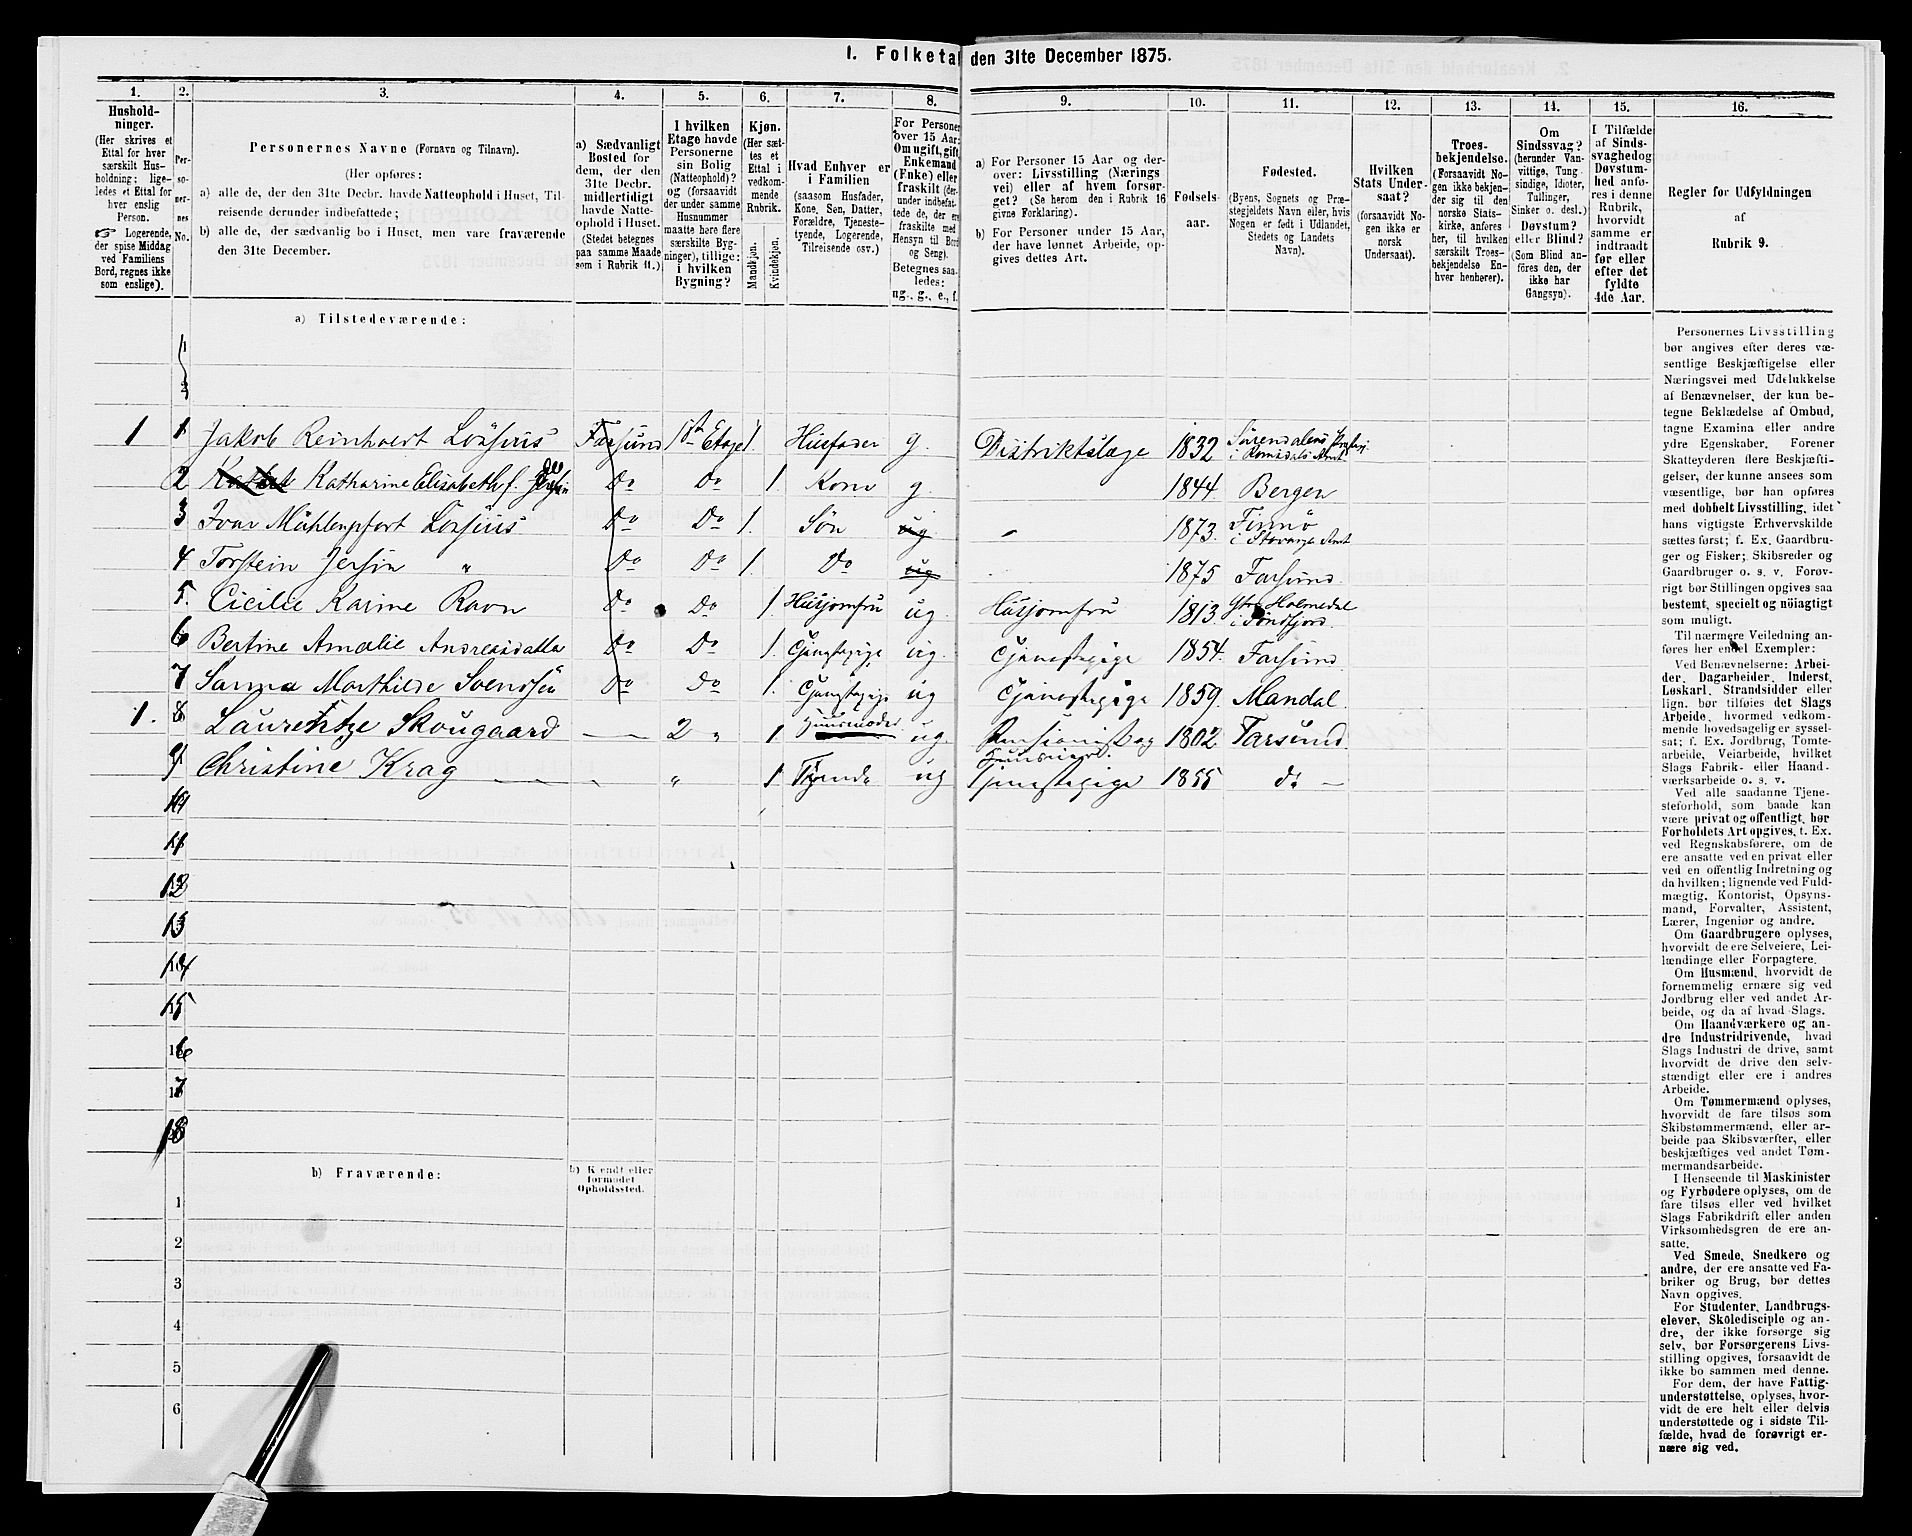 1. Folketal den 31te December 1875.
1. 2. 3. 4. 5. 6. 7. 8. 9. 10. 11. 12. 13. 14. 15. 16.
Hushold-
ninger.
(Her skrives et
Ettal for hver
særskilt Hus-
holdning; lige-
ledes et Ettal for
hver enslig
Person.
☞ Logerende,
der spise Middag
ved Familiens
Bord, regnes ikke
som enslige).
Per-
so-
ner-
nes
No.
Personernes Navne (Fornavn og Tilnavn).
(Her opføres:
a) alle de, der den 31te Decbr. havde Natteophold i Huset, Til-
reisende derunder indbefattede;
b) alle de, der sædvanlig bo i Huset, men vare fraværende
den 31te December.
a) Sædvanligt
Bosted for
dem, der den
31te Decbr.
midlertidigt
havde Natte-
ophold i Huset.
(Stedet betegnes
paa samme Maade
som i Rubrik 11.)
I hvilken
Etage havde
Personerne
sin Bolig
(Natteophold)?
og (forsaavidt
der under samme
Husnummer
maatte høre flere
særskilte Byg-
ninger), tillige:
i hvilken
Bygning?
Kjøn.
(Her sæt-
tes et
Ettal i
vedkom-
mende
Rubrik.
Mandkjøn.
Kvindekjøn.
Hvad Enhver er
i Familien
(saasom Husfader,
Kone, Søn, Datter,
Forældre, Tjeneste-
tyende, Logerende,
Tilreisende osv.)
For Personer
over 15 Aar:
Om ugift, gift,
Enkemand
(Enke) eller
fraskilt (der-
under indbefat-
tede de, der ere
fraskilte med
Hensyn til Bord
og Seng).
Betegnes saa-
ledes:
ug., g., e., f.
a) For Personer 15 Aar og der-
over: Livsstilling (Nærings
vei) eller af hvem forsør-
get? (Se herom den i Rubrik 16
givne Forklaring).
b) For Personer under 15 Aar,
der have lønnet Arbeide, op-
gives dettes Art.
Fødsels-
aar.
Fødested.
(Byens, Sognets og Præ-
stegjeldets Navn eller, hvis
Nogen er født i Udlandet,
Stedets og Landets
Navn).
Hvilken
Stats Under-
saat?
(forsaavidt No-
gen ikke er
norsk
Undersaat).
Troes-
bekjendelse.
(Forsaavidt No-
gen ikke bekjen-
der sig til den
norske Stats-
kirke, anføres
her, til hvilken
særskilt Troes-
bekjendelse En-
hver henhører).
Om
Sindssvag?
(herunder Van-
vittige, Tung-
sindige, Idioter,
Tullinger,
Sinker o. desl.)
Døvstum?
eller Blind?
(Som Blind an-
føres den, der
ikke har
Gangsyn).
I Tilfælde
af Sinds-
svaghed og
Døvstum-
hed anfø-
res i denne
Rubrik,
hvorvidt
samme er
indtraadt
før eller
efter det
fyldte
4de Aar.
Regler for Udfyldningen
af
Rubrik 9.
a) Tilstedeværende:
1 1 Jakob Reinhardt Lossius Farsund 1ste Etage 1. Husfader g. Distriktslæge 1832 Surendalens i Romsdals Amt
2 Katharine Elisabeth f. Jersin Do Do 1. Kone g. 1844 Bergen
3 Ivar Mühlenpfort Lossius Do Do 1. Søn ug 1873. Finnø i Stavanger Amt
4 Torstein Jersin " Do Do 1. Do ug 1875 Farsund
5. Cicilie Karine Ravn Do Do 1. Husjomfru ug. Husjomfru 1813. Ytre Holmedal i Søndfjord.
6 Bertine Amalie Andreasdatter Do Do 1. Tjenestepige ug. Tjenestepige 1854. Farsund
7 Sanna Mathilde Svendsen Do Do 1. Tjenestepige ug Tjenestepige 1859. Mandal
1. 8 Laurentze Skougaard 2 " 1 Huusmoder ug. Pensionist og 1802 Farsund
9 Christine Krag " 1 Tyende ug Tjenestepige 1855 do
10
11
12
13
14
15
16
17
18
b) Fraværende:
b) Kjendt eller
formodet
Opholdssted.
1
2
3
4
5
6
Personernes Livsstilling
bør angives efter deres væ-
sentlige Beskjæftigelse eller
Næringsvei med Udelukkelse
af Benævnelser, der kun be-
tegne Beklædelse af Ombud,
tagne Examina eller andre
ydre Egenskaber. Forener
Skatteyderen flere Beskjæfti-
gelser, der kunne ansees som
væsentlige, bør han opføres
med dobbelt Livsstilling, idet
hans vigtigste Erhvervskilde
sættes først; f. Ex. Gaardbru-
ger og Fisker; Skibsreder og
Gaardbruger o. s. v. Forøv-
rigt bør Stillingen opgives saa
bestemt, specielt og nöiagtigt
som muligt.
Til nærmere Veiledning an-
føres her enkel Exempler:
Ved Benævnelserne: Arbei-
der, Dagarbeider, Inderst,
Løskarl, Strandsidder eller
lign. bør tilføies det Slags
Arbeide, hvormed vedkom-
mende hovedsagelig er syssel-
sat; f. Ex. Jordbrug, Tomte-
arbeide, Veiarbeide, hvilket
Slags Fabrik- eller Haand-
værksarbeide o. s. v.
Ved alle saadanne Tjene-
steforhold, som baade kan
være privat og offentligt, bør
Forholdets Art opgives, t. Ex.
ved Regnskabsførere, om de
ere ansatte ved en privat eller
ved en offentlig Indretning og
da hvilken; lignende ved Fuld-
mægtig, Kontorist, Opsyns-
mand, Forvalter, Assistent,
Lærer, Ingeniør og andre.
Om Gaardbrugere oplyses,
hvorvidt de ere Selveiere, Lei-
lændinge eller Forpagtere.
Om Husmænd, hvorvidt de
fornemmelig ernære sig ved
Jordbrug eller ved andet Ar-
beide, og da af hvad Slags.
Om Haandværkere og an-
dre Industridrivende, hvad
Slags Industri de drive, samt
hvorvidt de drive den selv-
stændigt eller ere i andres
Arbeide.
Om Tømmermænd oplyses,
hvorvidt de fare tilsøs som
Skibstømmermænd, eller ar-
beide paa Skibsværfter, eller
beskjæftiges ved andet Tøm-
mermandsarbeide.
I Henseende til Maskinister
og Fyrbødere oplyses, om de
fare tilsøs eller ved hvilket
Slags Fabrikdrift eller anden
Virksomhedsgren de ere an-
satte.
Ved Smede, Snedkere og
andre, der ere ansatte ved Fa-
briker og Brug, bør dettes
Navn opgives.
For Studenter, Landbrugs-
elever, Skoledisciple og an-
dre, der ikke forsørge sig
selv, bør Forsørgerens Livs-
stilling opgives, forsaavidt de
ikke bo sammen med denne.
For dem, der have Fattig-
understøttelse, oplyses, hvor-
vidt de ere helt eller delvis
understøttede og i sidste Til-
fælde, hvad de forøvrigt er-
nære sig ved.